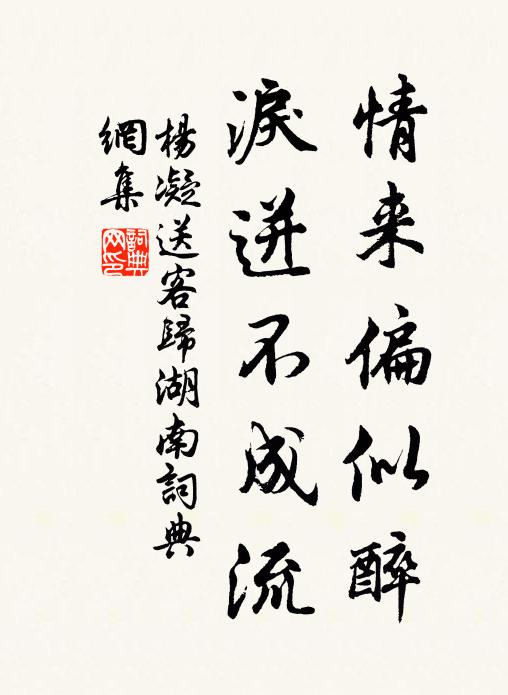 情来偏似醉
淚迸不成流
楊凝送客歸湖南詞典
網集
詞典
网印